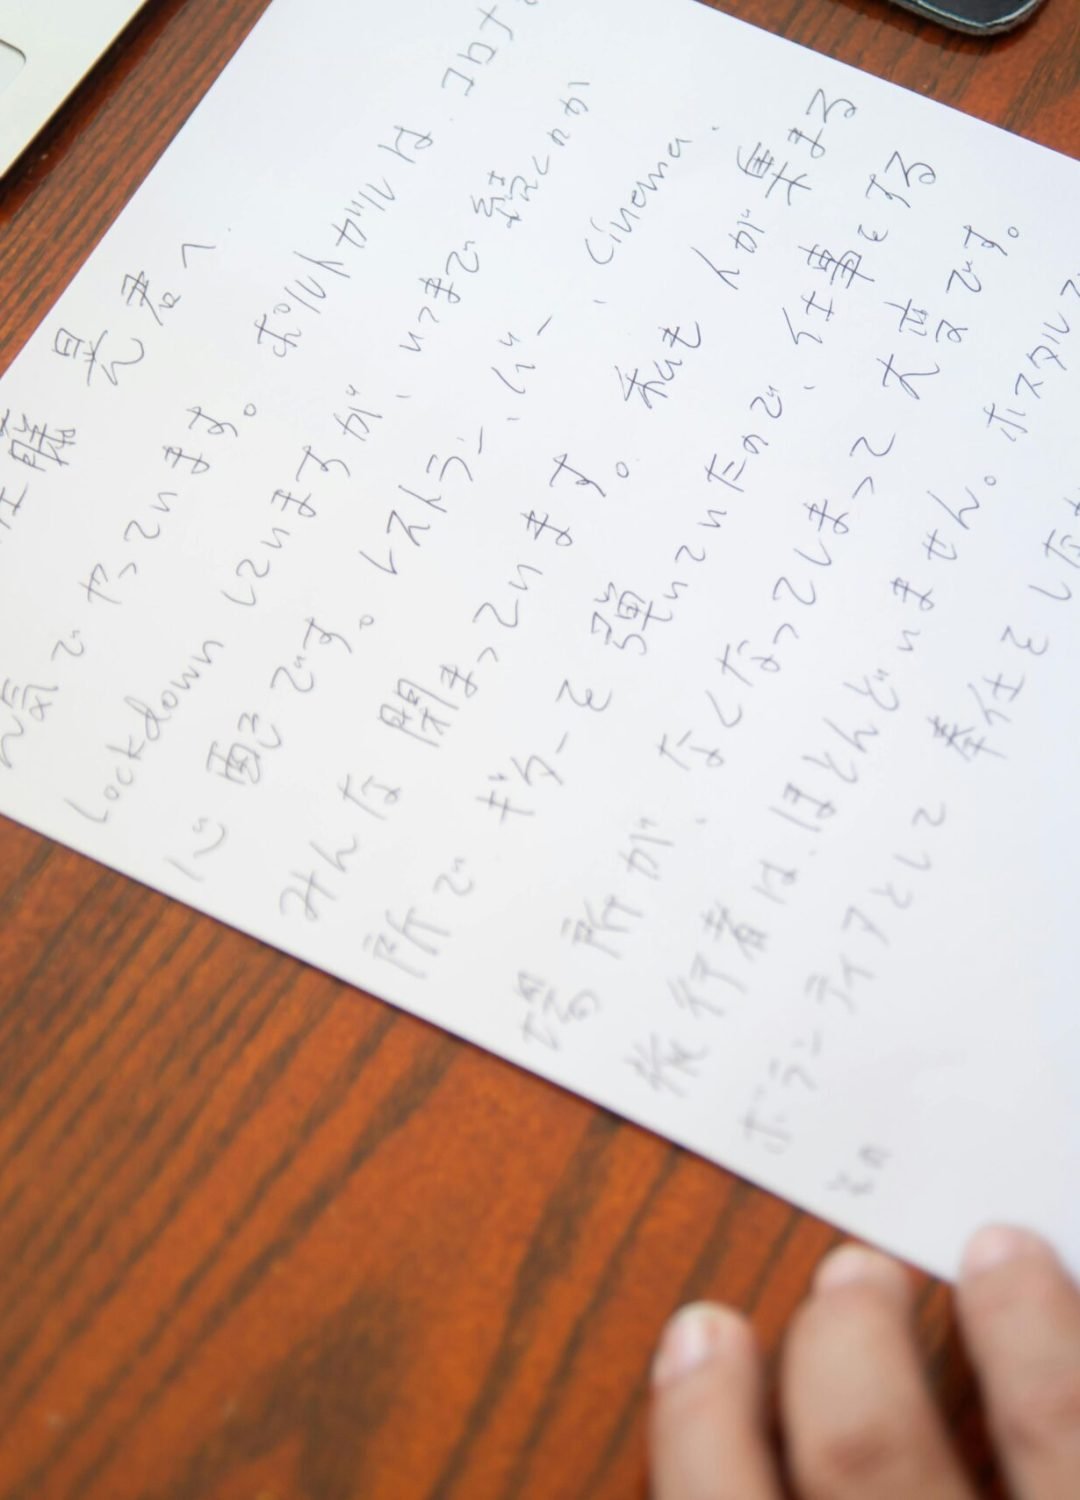 藤 晃 君へ
気で やっています。ポルトガルは、コロナで
Lockdown していますが、いつまで続くのか
心配です。レストラン、バー、cinema、
みんな 閉まっています。私も 人が集まる
所で ギターを 弾いていたので、仕事をする
場所が、なくなってしまって 大変です。
旅行者は、ほとんどいません。ホスタルで
ボランティアとして 奉仕を しな
その